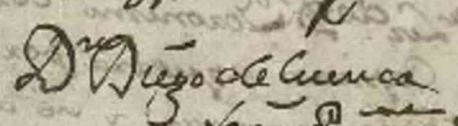 Dr Diego de Cuenca